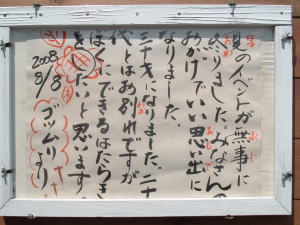 夏のイベントが無事に
終りました。みなさんの
おかげでいい思い出に
なりました。
三十才になりました。二十
代とはお別れですが
ぼくにできるはたらき
をしたいと思います
2008
8/8
ゴツムリより